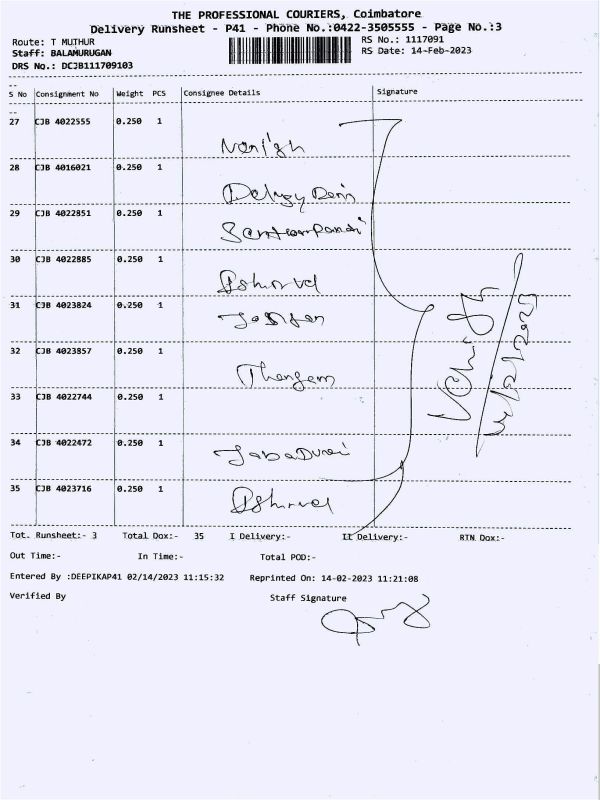 THE PROFESSIONAL COURIERS, Coimbatore
Delivery Runsheet - P41 - Phone No.:0422-3505555 - Page No.:3
Route: T MUTHUR
RS No.: 1117091
Staff: BALAMURUGAN
RS Date: 14-Feb-2023
DRS No.: DCJB111709103
S No Consignment No Weight PCS Consignee Details Signature
27 CJB 4022555 0.250 1
28 CJB 4016021 0.250 1
29 CJB 4022851 0.250 1
30 CJB 4022885 0.250 1
31 CJB 4023824 0.250 1
32 CJB 4023857 0.250 1
Thangam
33 CJB 4022744
34 CJB 4022472 0.250 1
JabaDurai
35 CJB 4023716 0.250 1
Tot. Runsheet:- 3 Total Dox:- 35 I Delivery:- II Delivery:- RTN Dox:-
Out Time:- In Time:- Total POD:-
Entered By :DEEPIKAP41 02/14/2023 11:15:32 Reprinted On: 14-02-2023 11:21:08
Verified By Staff Signature